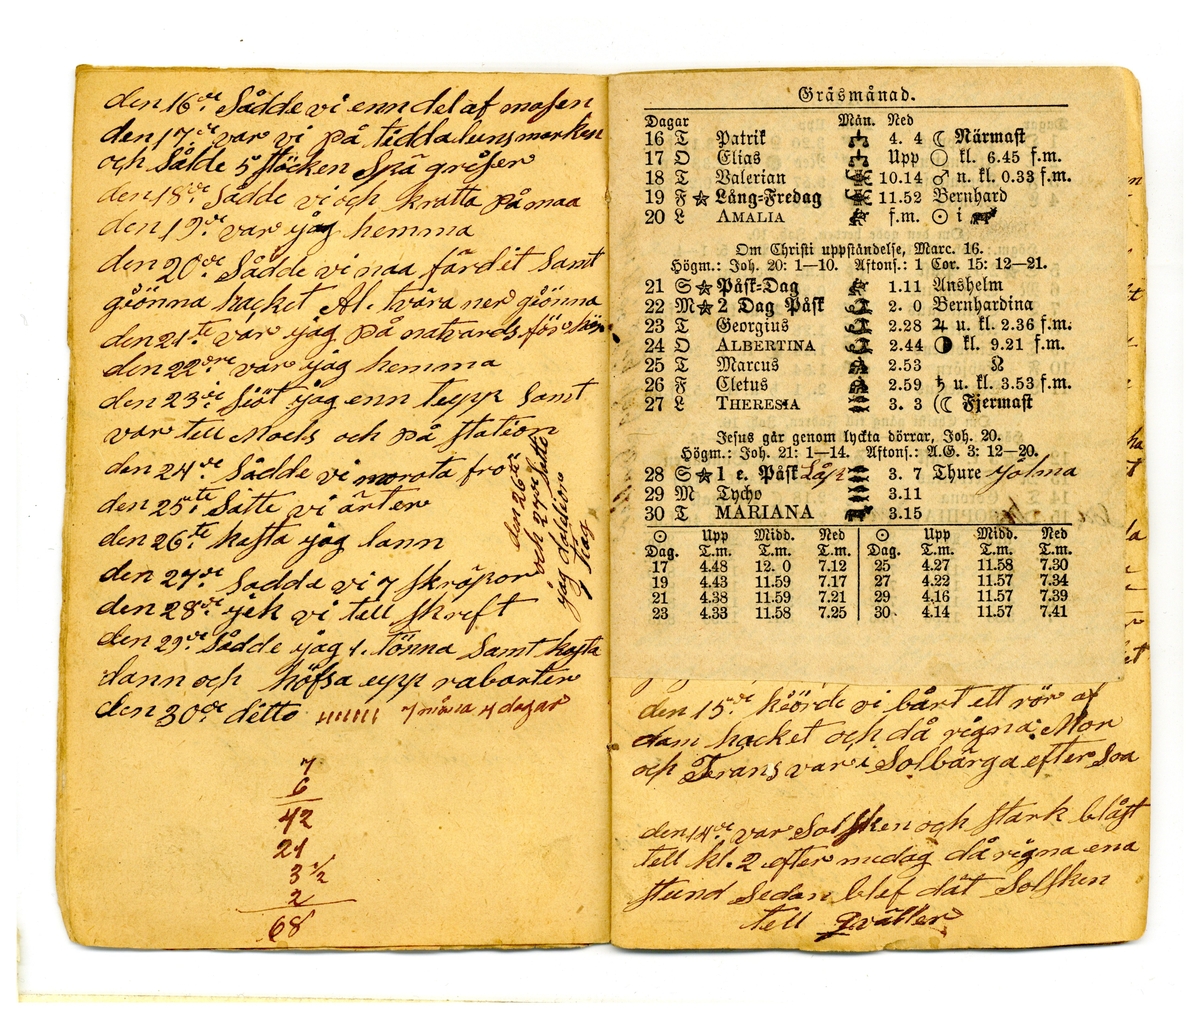 den 16de Sådde vi enn del af mosen
den 17de var vi på tidda luns marken
och Sålde 5 stöcken Skä griser
den 18de Sådde vi och kratta på maa
den 19de var jåg hemma
den 20de Sådde vi naa färdit Samt
giönna hacket Al. tvära ner giönna
den 21te var jåg på natvards för
den 22dre var jåg hemma
den 23di Siöt jåg enn tepp Samt
var tell Moels och på station
den 24de Sådde vi morota frö
den 25te Sätte vi ärter
den 26te kasta jåg lann
den 27de Sadda vi 7 Skröpor
den 28de jek vi tell skreft
den 29de Sådde jåg 1. tönna Samt kasta
lann och höfsa epp rabarter
den 30de ditto 7 måna 4 dagar
den 26te
och 27de Satte
jåg
7
6
42
21
3 1/2
2
68
Gräsmånad.
Dagar Mån. Ned
16 T Patrik 4. 4 ☾ Närmast
17 O Elias Upp ○ kl. 6.45 f.m.
18 T Valerian 10.14 ♂ n. kl. 0.33 f.m.
19 F ☆ Lång-Fredag 11.52 Bernhard
20 L AMALIA f.m. ☉ i
Om Christi uppståndelse, Marc. 16.
Högm.: Joh. 20: 1—10. Aftons.: 1 Cor. 15: 12—21.
21 S ☆ Påsk-Dag 1.11 Anshelm
22 M ☆ 2 Dag Påsk 2. 0 Bernhardina
23 T Georgius 2.28 ♃ u. kl. 2.36 f.m.
24 O ALBERTINA 2.44 ◑ kl. 9.21 f.m.
25 T Marcus 2.53 ☊
26 F Cletus 2.59 ♄ u. kl. 3.53 f.m.
27 L THERESIA 3. 3 (☾ Fjermast
Jesus går genom lyckta dörrar, Joh. 20.
Högm.: Joh. 21: 1—14. Aftons.: A.G. 3: 12—20.
28 S ☆ 1 e. Påsk 3. 7 Thure
29 M Tycho 3.11
30 T MARIANA 3.15
☉ Upp Midd. Ned ☉ Upp Midd. Ned
Dag. T.m. T.m. T.m. Dag. T.m. T.m. T.m.
17 4.48 12. 0 7.12 25 4.27 11.58 7.30
19 4.43 11.59 7.17 27 4.22 11.57 7.34
21 4.38 11.59 7.21 29 4.16 11.57 7.39
23 4.33 11.58 7.25 30 4.14 11.57 7.41
den 15de kiörde vi bårt ett rör af
dam hacket och då rigna. Mor
och Frans var i Solbärga efter Soa
den 14de var Solsken och stark blåst
tell kl. 2 efter medag då rigna ena
stund Sedan blef dät Solsken
tell qväller